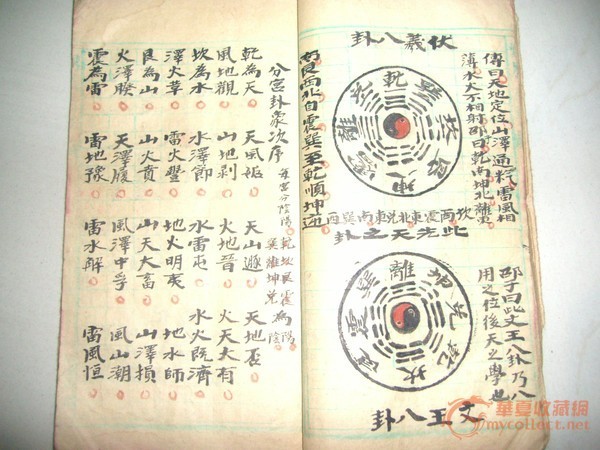 伏義八卦
傳曰天地定位山澤通炁雷風相
薄水火不相射邵曰乾南坤北離東
坎西震東北兌東南巽西
南艮西北自震巽至乾順坤逆
此先天之卦
乾巽坎艮坤震離兌
邵子曰此文王八卦乃八
用之位後天之學也
離坤兌乾坎艮震巽
文王八卦
分宮卦象次序
每宮分陰陽
乾坎艮震為陽
巽離坤兌為陰
乾為天 天風姤 天山遯 天地否
風地觀 山地剝 火地晉 火天大有
坎為水 水澤節 水雷屯 水火既濟
澤火革 雷火豐 地火明夷 地水師
艮為山 山火賁 山天大畜 山澤損
火澤睽 天澤履 風澤中孚 風山潮
震為雷 雷地豫 雷水解 雷風恒
華夏收藏網
mycollect.net